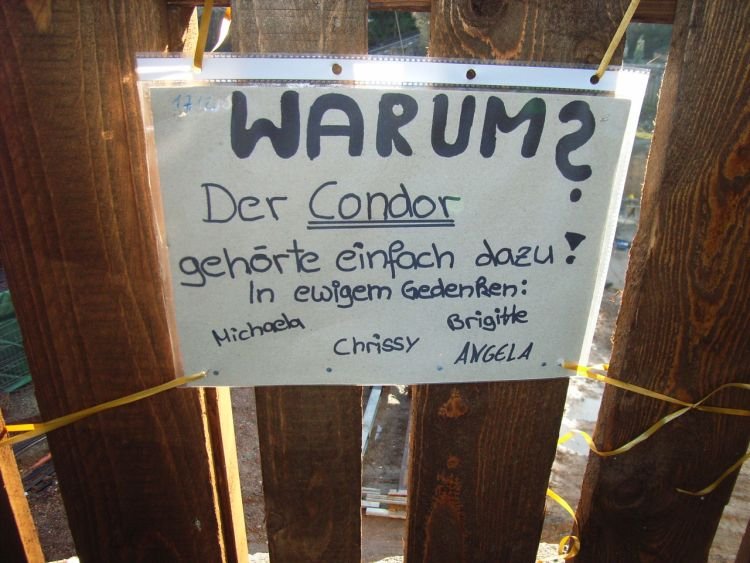 WARUM?
Der Condor
gehörte einfach dazu!
In ewigem Gedenken:
Michaela
Chrissy
Brigitte
ANGELA